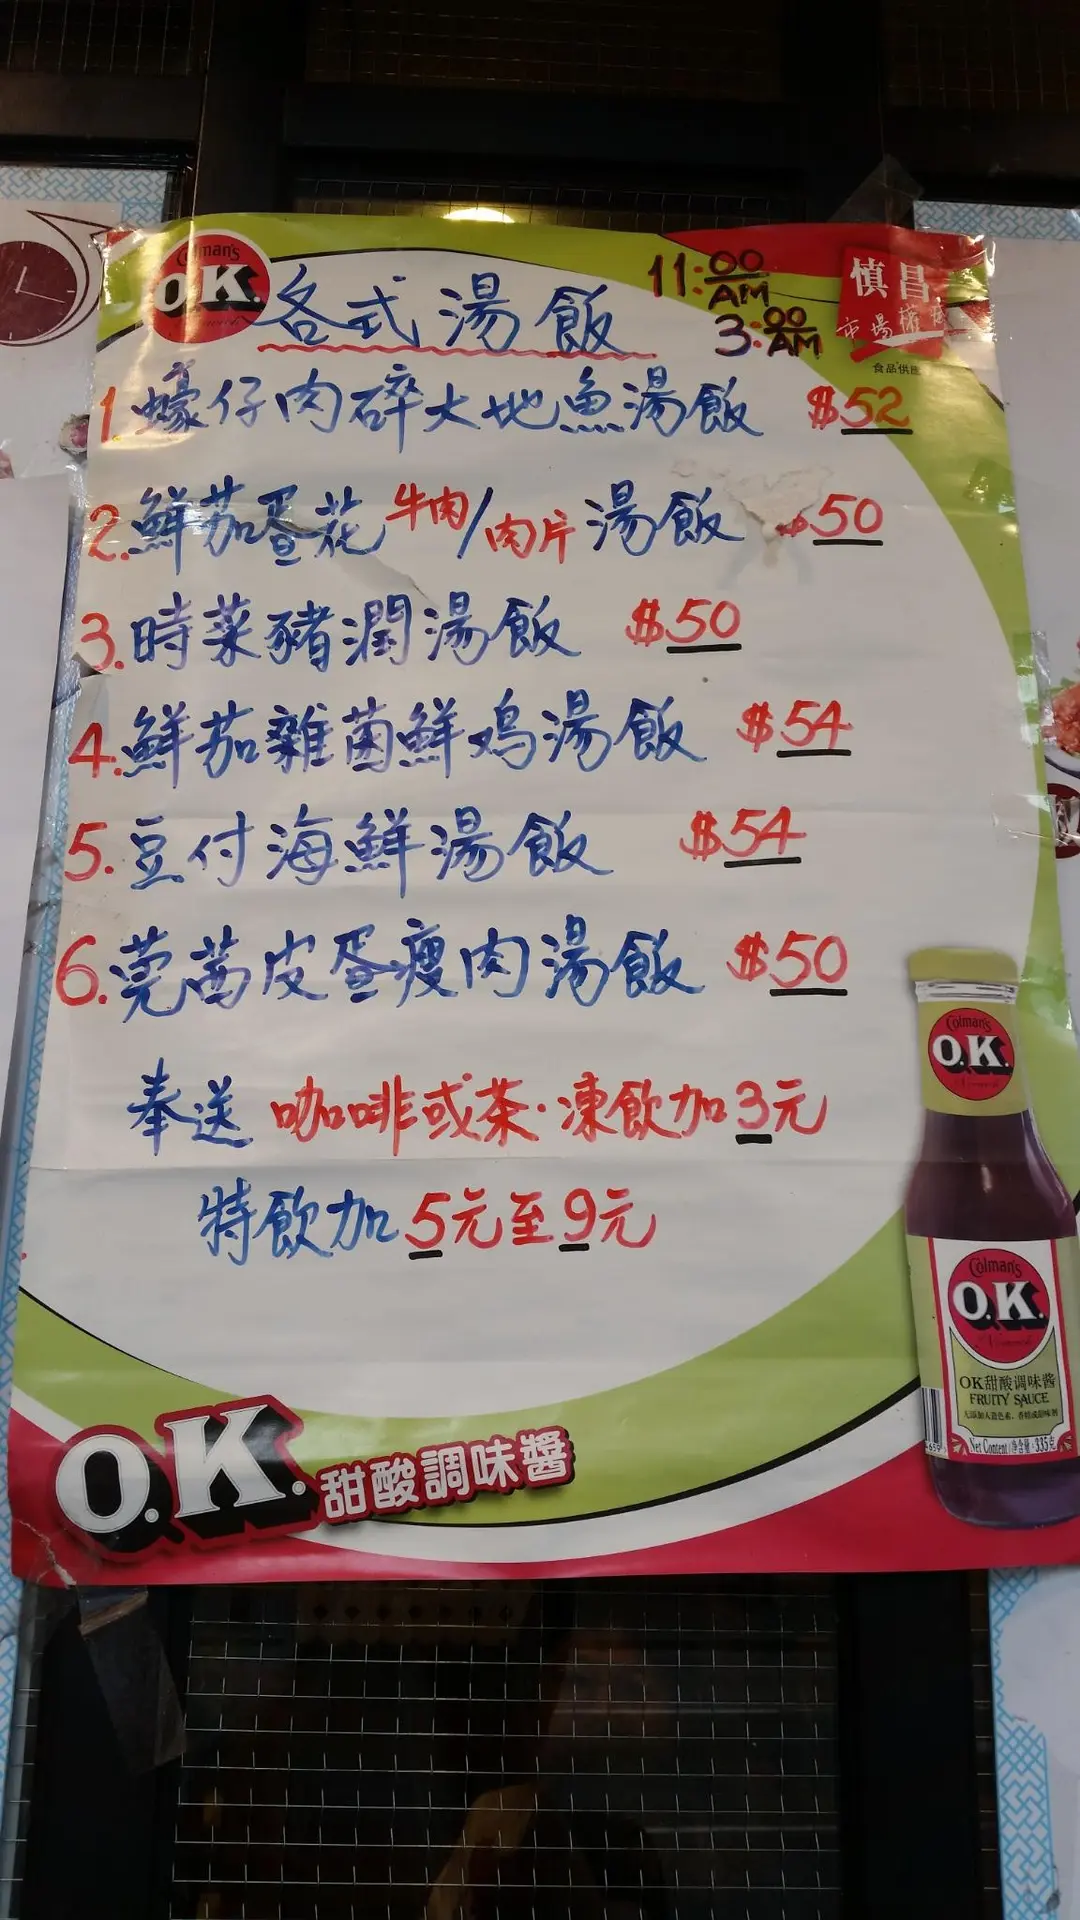 Colman's
O.K.
各式湯飯
11:00 AM
3:00 AM
慎昌
市場
食品供應
1. 蠔仔肉碎大地魚湯飯 $52
2. 鮮茄蛋花牛肉/肉片湯飯 $50
3. 時菜豬潤湯飯 $50
4. 鮮茄雜菌鮮鸡湯飯 $54
5. 豆付海鮮湯飯 $54
6. 芫茜皮蛋瘦肉湯飯 $50
奉送 咖啡或茶·凍飲加3元
特飲加5元至9元
Colman's
O.K.
Colman's
O.K.
OK甜酸调味酱
FRUITY SAUCE
Net Content/净含量:335克
O.K. 甜酸調味醬